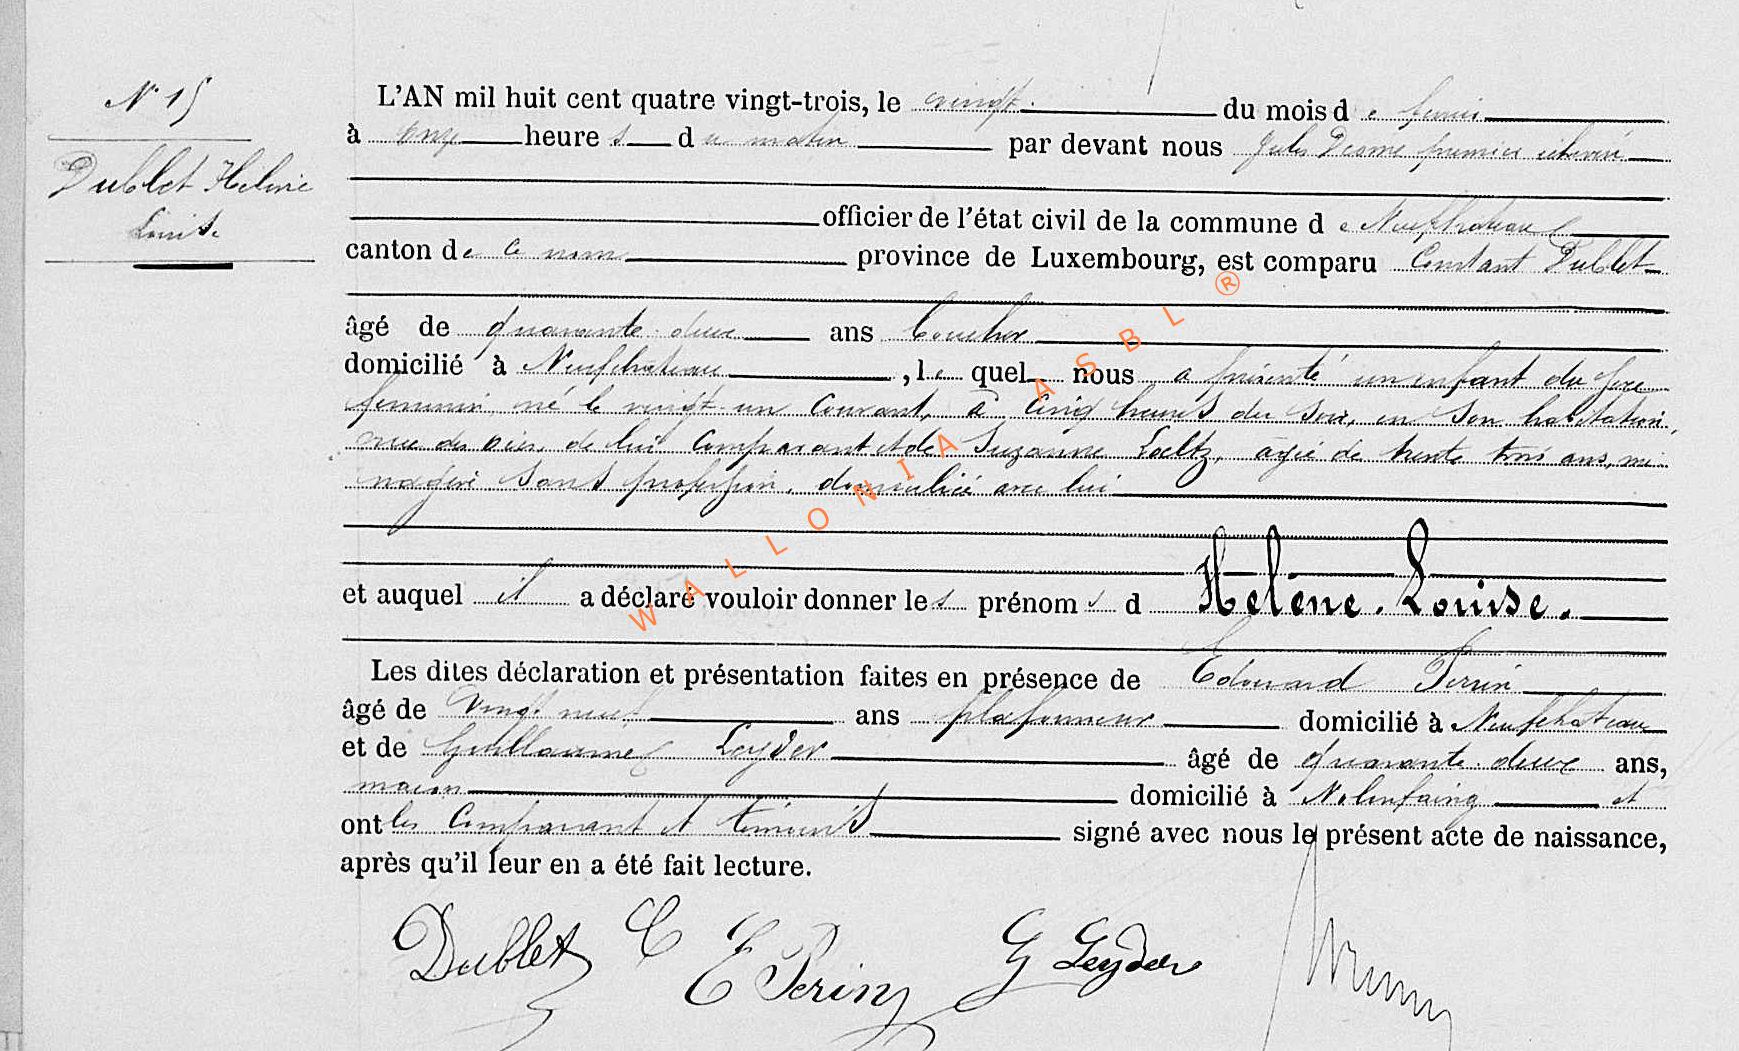 N° 15
Dublet Helene
Louise
L'AN mil huit cent quatre vingt-trois, le vingt du mois de fevrier
à onze heures du matin par devant nous Jules premier échevin
officier de l'état civil de la commune de Neufchateau
canton de ce nom province de Luxembourg, est comparu Constant Dublet
âgé de quarante deux ans
domicilié à Neufchateau, lequel nous a présenté un enfant du sexe
feminin, né le vingt un courant, à cinq heures du soir, en son habitation,
rue de lui comparant et de Suzanne Loeltz, agée de trente trois ans, mé-
nagère sans profession, domiciliée avec lui
et auquel il a déclaré vouloir donner les prénoms d Hélène. Louise.
Les dites déclaration et présentation faites en présence de Edouard Perrin
âgé de vingt neuf ans plafonneur domicilié à Neufchateau
et de Guillaume Leyder âgé de quarante deux ans,
maçon domicilié à Nolinfaing et
ont les comparant et témoins signé avec nous le présent acte de naissance,
après qu'il leur en a été fait lecture.
Dublet C E Perin G Leyder
WALLONIA ASBL ®